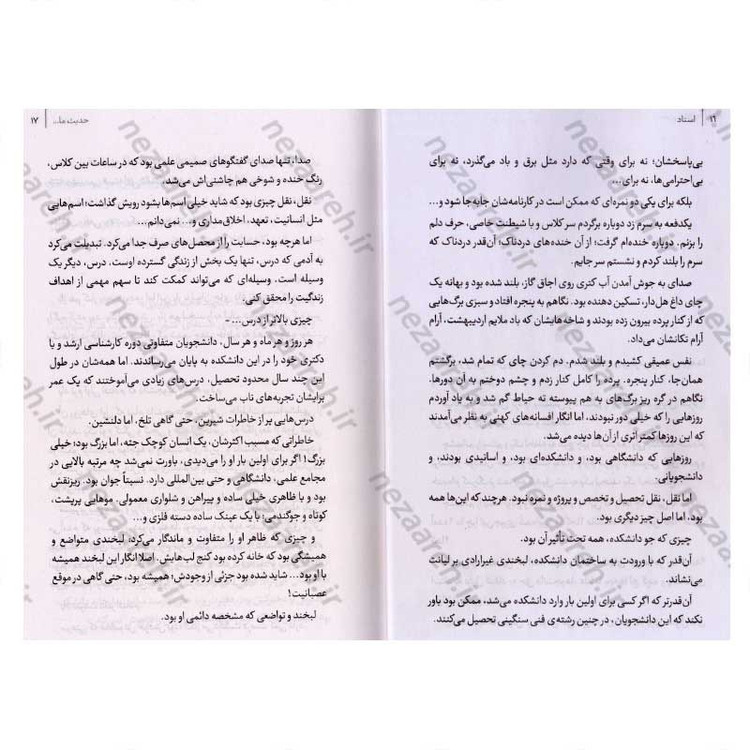 ۱۶ | استاد
بی‌پاسخشان؛ نه برای وقتی که دارد مثل برق و باد می‌گذرد، نه برای
بی‌احترامی‌ها، نه برای...
بلکه برای یکی دو نمره‌ای که ممکن است در کارنامه‌شان جابه‌جا شود و...
یکدفعه به سرم زد دوباره برگردم سر کلاس و با شیطنت خاصی، حرف دلم
را بزنم. دوباره خنده‌ام گرفت؛ از آن خنده‌های دردناک؛ آن‌قدر دردناک که
سرم را بلند کردم و نشستم سر جایم.
صدای به جوش آمدن آب کتری روی اجاق گاز، بلند شده بود و بهانه یک
چای داغ هل‌دار، تسکین دهنده بود. نگاهم به پنجره افتاد و سبزی برگ‌هایی
که از کنار پرده بیرون زده بودند و شاخه‌هایشان که باد ملایم اردیبهشت، آرام
آرام تکانشان می‌داد.
نفس عمیقی کشیدم و بلند شدم. دم کردن چای که تمام شد، برگشتم
همان‌جا، کنار پنجره. پرده را کامل کنار زدم و چشم دوختم به آن دورها.
نگاهم در گره ریز برگ‌های به هم پیوسته ته حیاط گم شد و به یاد آوردم
روزهایی را که خیلی دور نبودند، اما انگار افسانه‌های کهنی به نظر می‌آمدند
که این روزها کمتر اثری از آن‌ها دیده می‌شد.
روزهایی که دانشگاهی بود، و دانشکده‌ای بود، و اساتیدی بودند، و
دانشجویانی.
اما نقل، نقل تحصیل و تخصص و پروژه و نمره نبود. هرچند که این‌ها همه
بود، اما اصل چیز دیگری بود.
چیزی که جو دانشکده، همه تحت تأثیر آن بود.
آن‌قدر که با ورودت به ساختمان دانشکده، لبخندی غیرارادی بر لبانت
می‌نشاند.
آن‌قدرتر که اگر کسی برای اولین بار وارد دانشکده می‌شد، ممکن بود باور
نکند که این دانشجویان، در چنین رشته‌ی فنی سنگینی تحصیل می‌کنند.
حدیث ما... | ۱۷
صدا، تنها صدای گفتگوهای صمیمی علمی بود که در ساعات بین کلاس،
رنگ خنده و شوخی هم چاشنی‌اش می‌شد.
نقل، نقل چیزی بود که شاید خیلی اسم‌ها بشود رویش گذاشت؛ اسم‌هایی
مثل انسانیت، تعهد، اخلاق‌مداری و... نمی‌دانم...
اما هرچه بود، حسابت را از محصل‌های صرف جدا می‌کرد. تبدیلت می‌کرد
به آدمی که درس، تنها یک بخش از زندگی گسترده اوست. درس، دیگر یک
وسیله است. وسیله‌ای که می‌تواند کمکت کند تا سهم مهمی از اهداف
زندگیت را محقق کنی.
چیزی بالاتر از درس... -
هر روز و هر ماه و هر سال، دانشجویان متفاوتی دوره کارشناسی ارشد و یا
دکتری خود را در این دانشکده به پایان می‌رساندند. اما همه‌شان در طول
این چند سال محدود تحصیل، درس‌های زیادی می‌آموختند که یک عمر
برایشان تجربه‌های ناب می‌ساخت.
درس‌هایی پر از خاطرات شیرین، حتی گاهی تلخ، اما دلنشین.
خاطراتی که مسبب اکثرشان، یک انسان کوچک جثه، اما بزرگ بود؛ خیلی
بزرگ! اگر برای اولین بار او را می‌دیدی، باورت نمی‌شد چه مرتبه بالایی در
مجامع علمی، دانشگاهی و حتی بین‌المللی دارد. نسبتاً جوان بود. ریزنقش
بود و با ظاهری خیلی ساده و پیراهن و شلواری معمولی. موهایی پرپشت،
کوتاه و جوگندمی؛ با یک عینک ساده دسته فلزی و...
و چیزی که ظاهر او را متفاوت و ماندگار می‌کرد، لبخندی متواضع و
همیشگی بود که خانه کرده بود کنج لب‌هایش. اصلا انگار این لبخند همیشه
با او بود... شاید شده بود جزئی از وجودش؛ همیشه بود، حتی گاهی در موقع
عصبانیت!
لبخند و تواضعی که مشخصه دائمی او بود.
nezaareh.ir